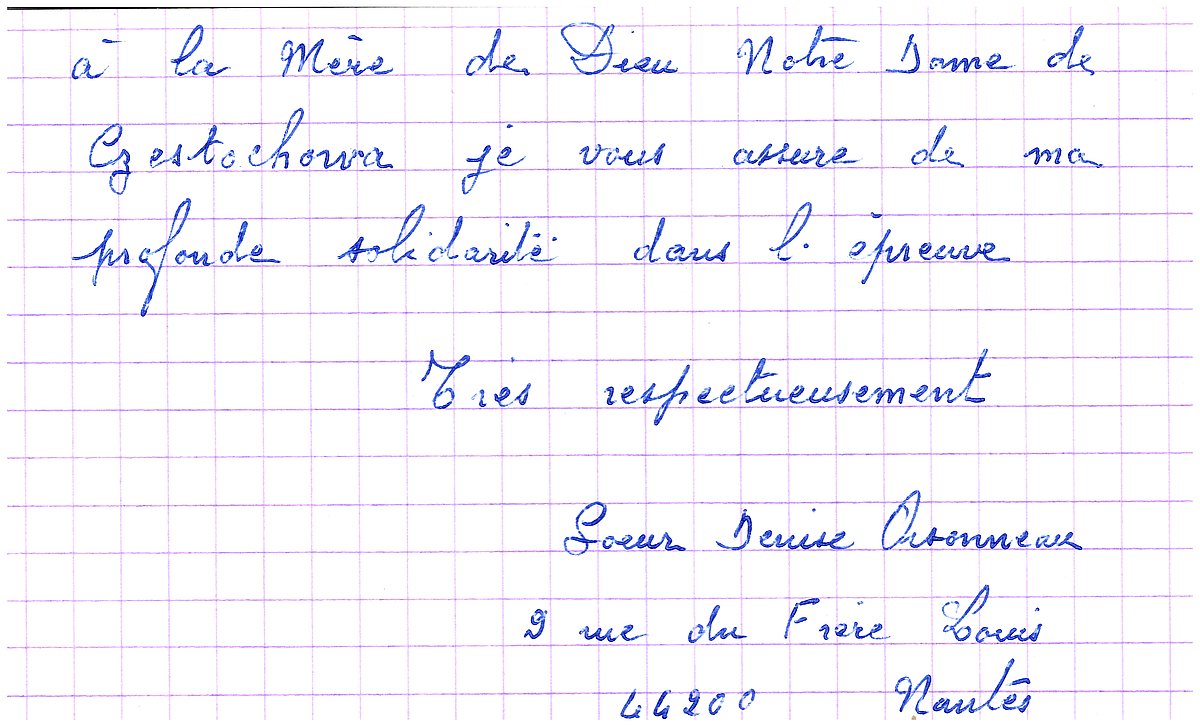 à la Mère de Dieu Notre Dame de
Czestochowa je vous assure de ma
profonde solidarité dans l'épreuve
Très respectueusement
Soeur Denise Oisonneau
9 rue du Frère Louis
44200 Nantes